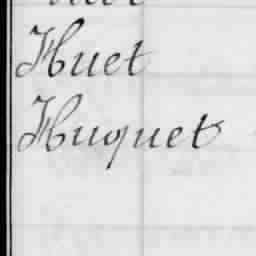 Huet
Huquet